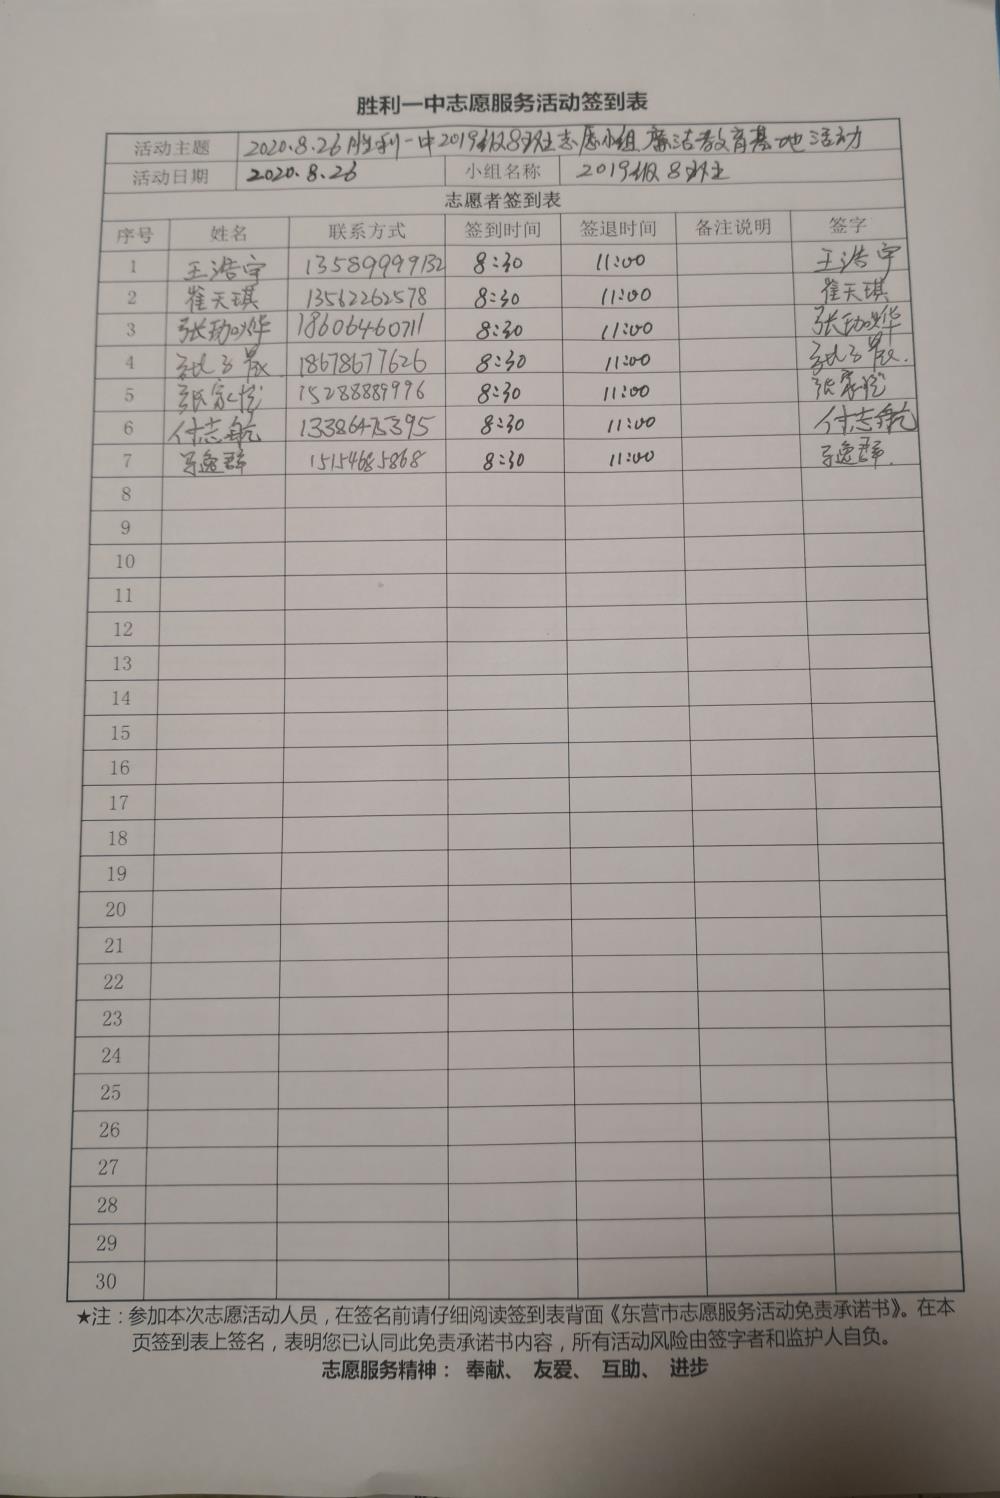 胜利一中志愿服务活动签到表
活动主题 2020.8.26胜利一中2019级8班志愿小组廉洁教育基地活动
活动日期 2020.8.26 小组名称 2019级8班
志愿者签到表
序号 姓名 联系方式 签到时间 签退时间 备注说明 签字
1 王浩宇 13589999132 8:30 11:00 王浩宇
2 崔天琪 13562262578 8:30 11:00 崔天琪
3 张 18606460711 8:30 11:00 张
4 18678677626 8:30 11:00
5 张家悦 15288889996 8:30 11:00 张家悦
6 付志航 13386475395 8:30 11:00 付志航
7 逸群 15154685868 8:30 11:00 逸群
8
9
10
11
12
13
14
15
16
17
18
19
20
21
22
23
24
25
26
27
28
29
30
★注：参加本次志愿活动人员，在签名前请仔细阅读签到表背面《东营市志愿服务活动免责承诺书》。在本
页签到表上签名，表明您已认同此免责承诺书内容，所有活动风险由签字者和监护人自负。
志愿服务精神： 奉献、 友爱、 互助、 进步